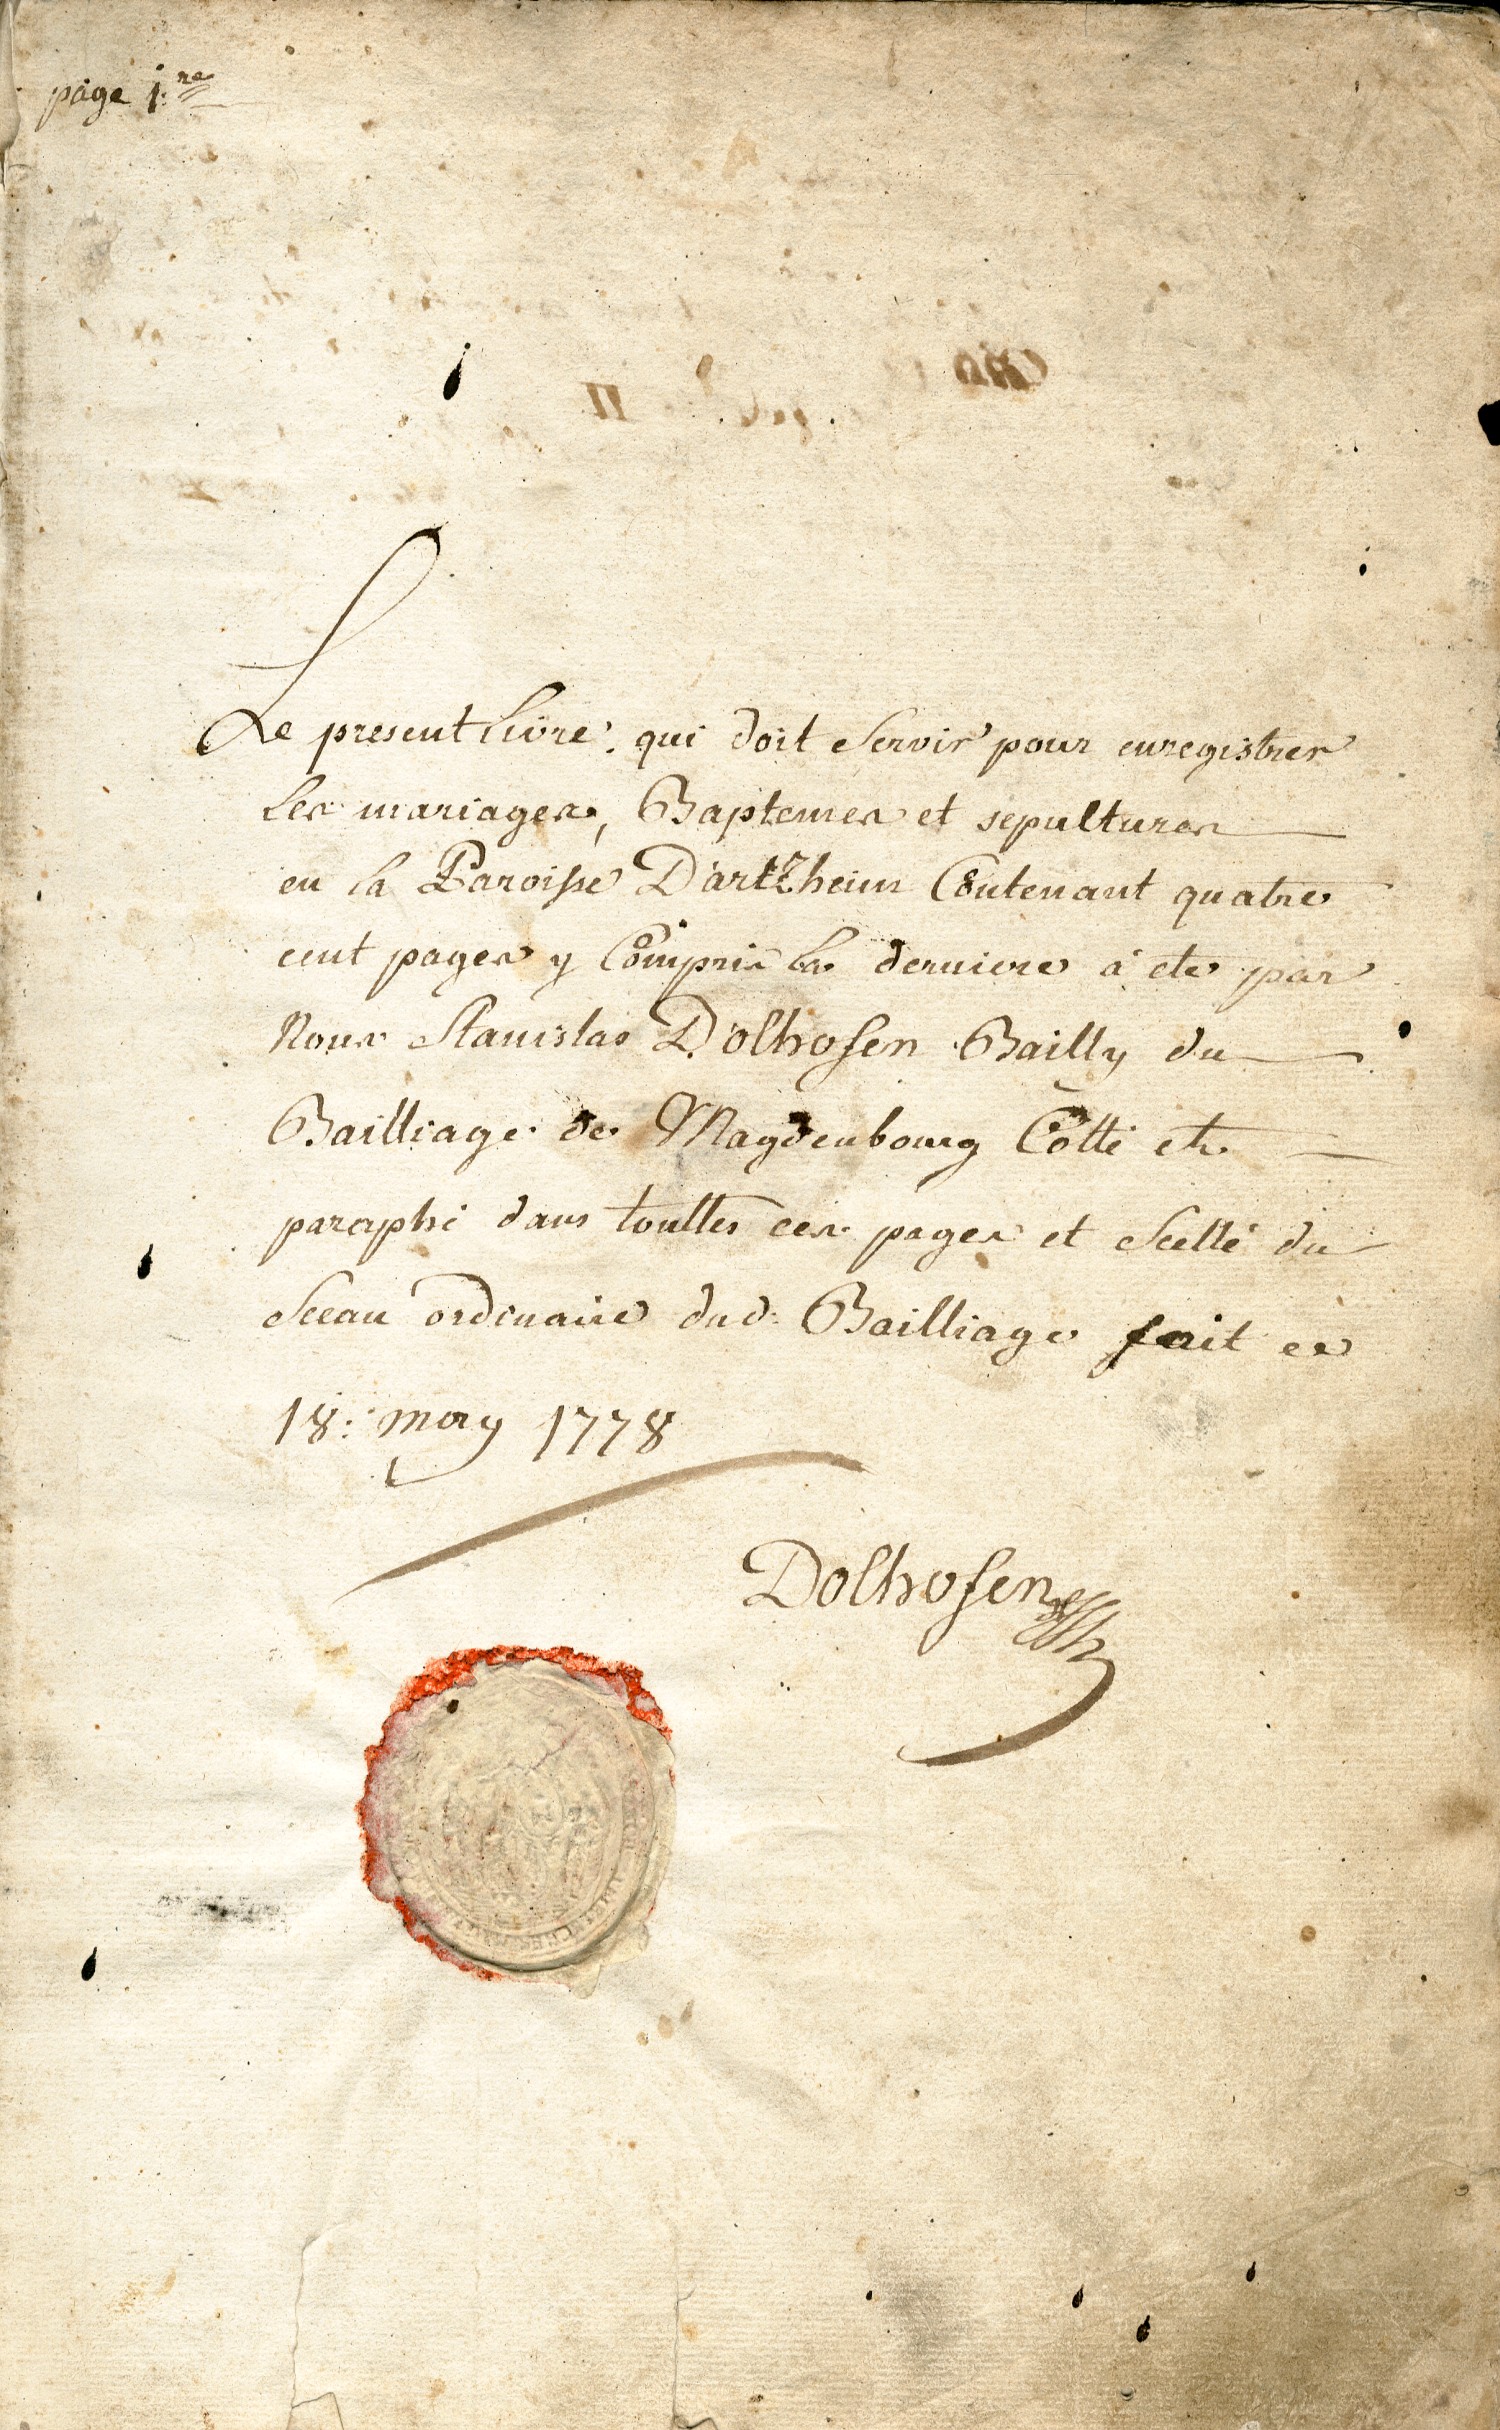 page 1.re
Le present livre. qui doit servir pour enregistrer
les mariages, Baptemes et sepultures
en la Paroisse D'artzheim Contenant quatre
cent pages y Compris la derniere à ete par
Nous Stanislas Dolhofen Bailly du
Bailliage de Magdenbourg Cotté et
paraphé dans touttes ces pages et scellé du
Sceau ordinaire dud: Bailliage fait ce
18: may 1778
Dolhofen